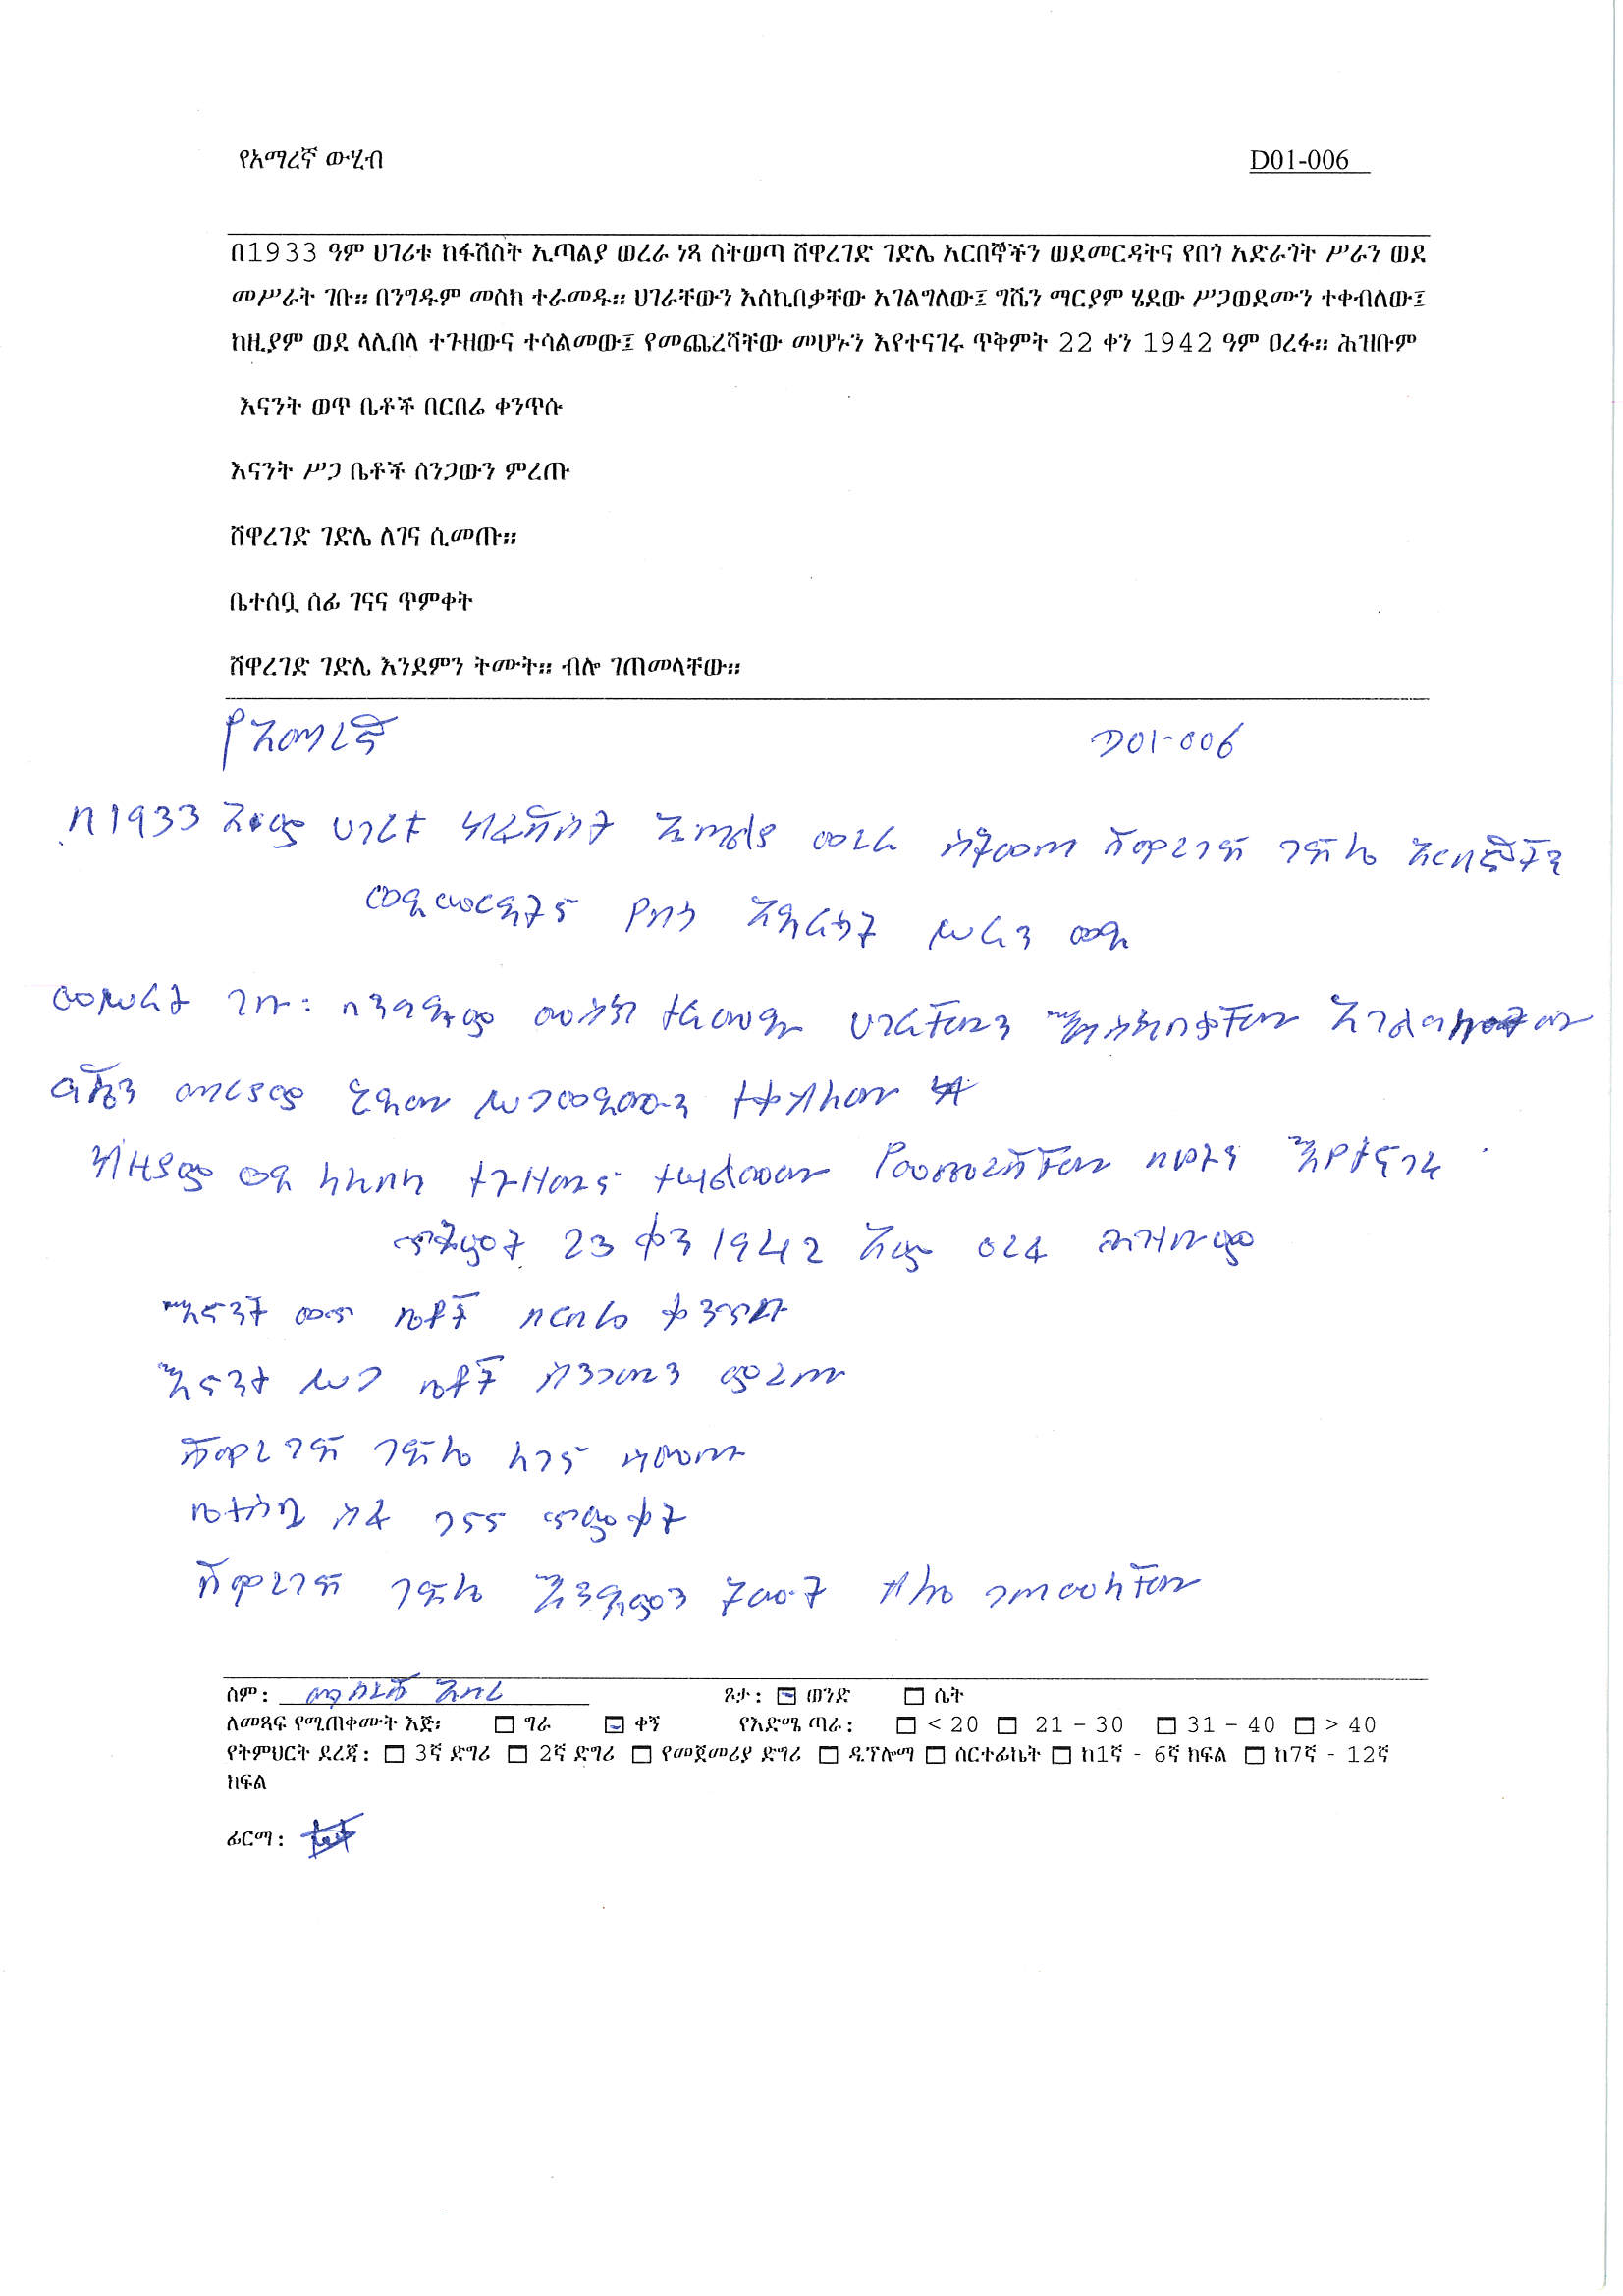 የአማረኛ ውሂብ D01-006
በ1933 ዓም ሀገሪቱ ከፋሽስት ኢጣልያ ወረራ ነጻ ስትወጣ ሸዋረገድ ገድሌ አርበኞችን ወደመርዳትና የበጎ አድራጎት ሥራን ወደ
መሥራት ገቡ። በንግዱም መስክ ተራመዱ። ሀገራቸውን እስኪበቃቸው አገልግለው፤ ግሼን ማርያም ሄደው ሥጋወደሙን ተቀብለው፤
ከዚያም ወደ ላሊበላ ተጉዘውና ተሳልመው፤ የመጨረሻቸው መሆኑን እየተናገሩ ጥቅምት 22 ቀን 1942 ዓም ዐረፉ። ሕዝቡም
እናንት ወጥ ቤቶች በርበሬ ቀንጥሱ
እናንት ሥጋ ቤቶች ሰንጋውን ምረጡ
ሸዋረገድ ገድሌ ለገና ሲመጡ።
ቤተሰቧ ሰፊ ገናና ጥምቀት
ሸዋረገድ ገድሌ እንደምን ትሙት። ብሎ ገጠመላቸው።
የአማረኛ D01-006
በ1933 አ.ም ሀገሪቱ ከፋሽስት ኢጣልያ ወረራ ስትወጣ ሸዋረገድ ገድሌ አርበኞችን
ወደመርዳትና የበጎ አድራጎት ሥራን ወደ
መሥራት ገቡ። በንግዱም መስክ ተራመዱ ሀገራቸውን እስኪበቃቸው አገልግለው
ግሼን ማርያም ሄደው ሥጋወደሙን ተቀብለው
ከዚያም ወደ ላሊበላ ተጉዘውና ተሳልመው የመጨረሻቸው በሆኑን እየተናገሩ
ጥቅምት 23 ቀን 1942 አም ዐረፉ ሕዝቡም
እናንት ወጥ ቤቶች በርበሬ ቀንጥሱ
እናንት ሥጋ ቤቶች ሰንጋውን ምረጡ
ሸዋረገድ ገድሌ ለገና ሲመጡ
ቤተሰቧ ሰፊ ገናና ጥምቀት
ሸዋረገድ ገድሌ እንደምን ትሙት ብሎ ገጠመላቸው
ስም: ጾታ: ወንድ ሴት
ለመጻፍ የሚጠቀሙት እጅ፡ ግራ ቀኝ የእድሜ ጣራ: < 20 21 - 30 31 - 40 > 40
የትምህርት ደረጃ: 3ኛ ድግሪ 2ኛ ድግሪ የመጀመሪያ ድግሪ ዲፕሎማ ሰርተፊኬት ከ1ኛ - 6ኛ ክፍል ከ7ኛ - 12ኛ
ክፍል
ፊርማ: